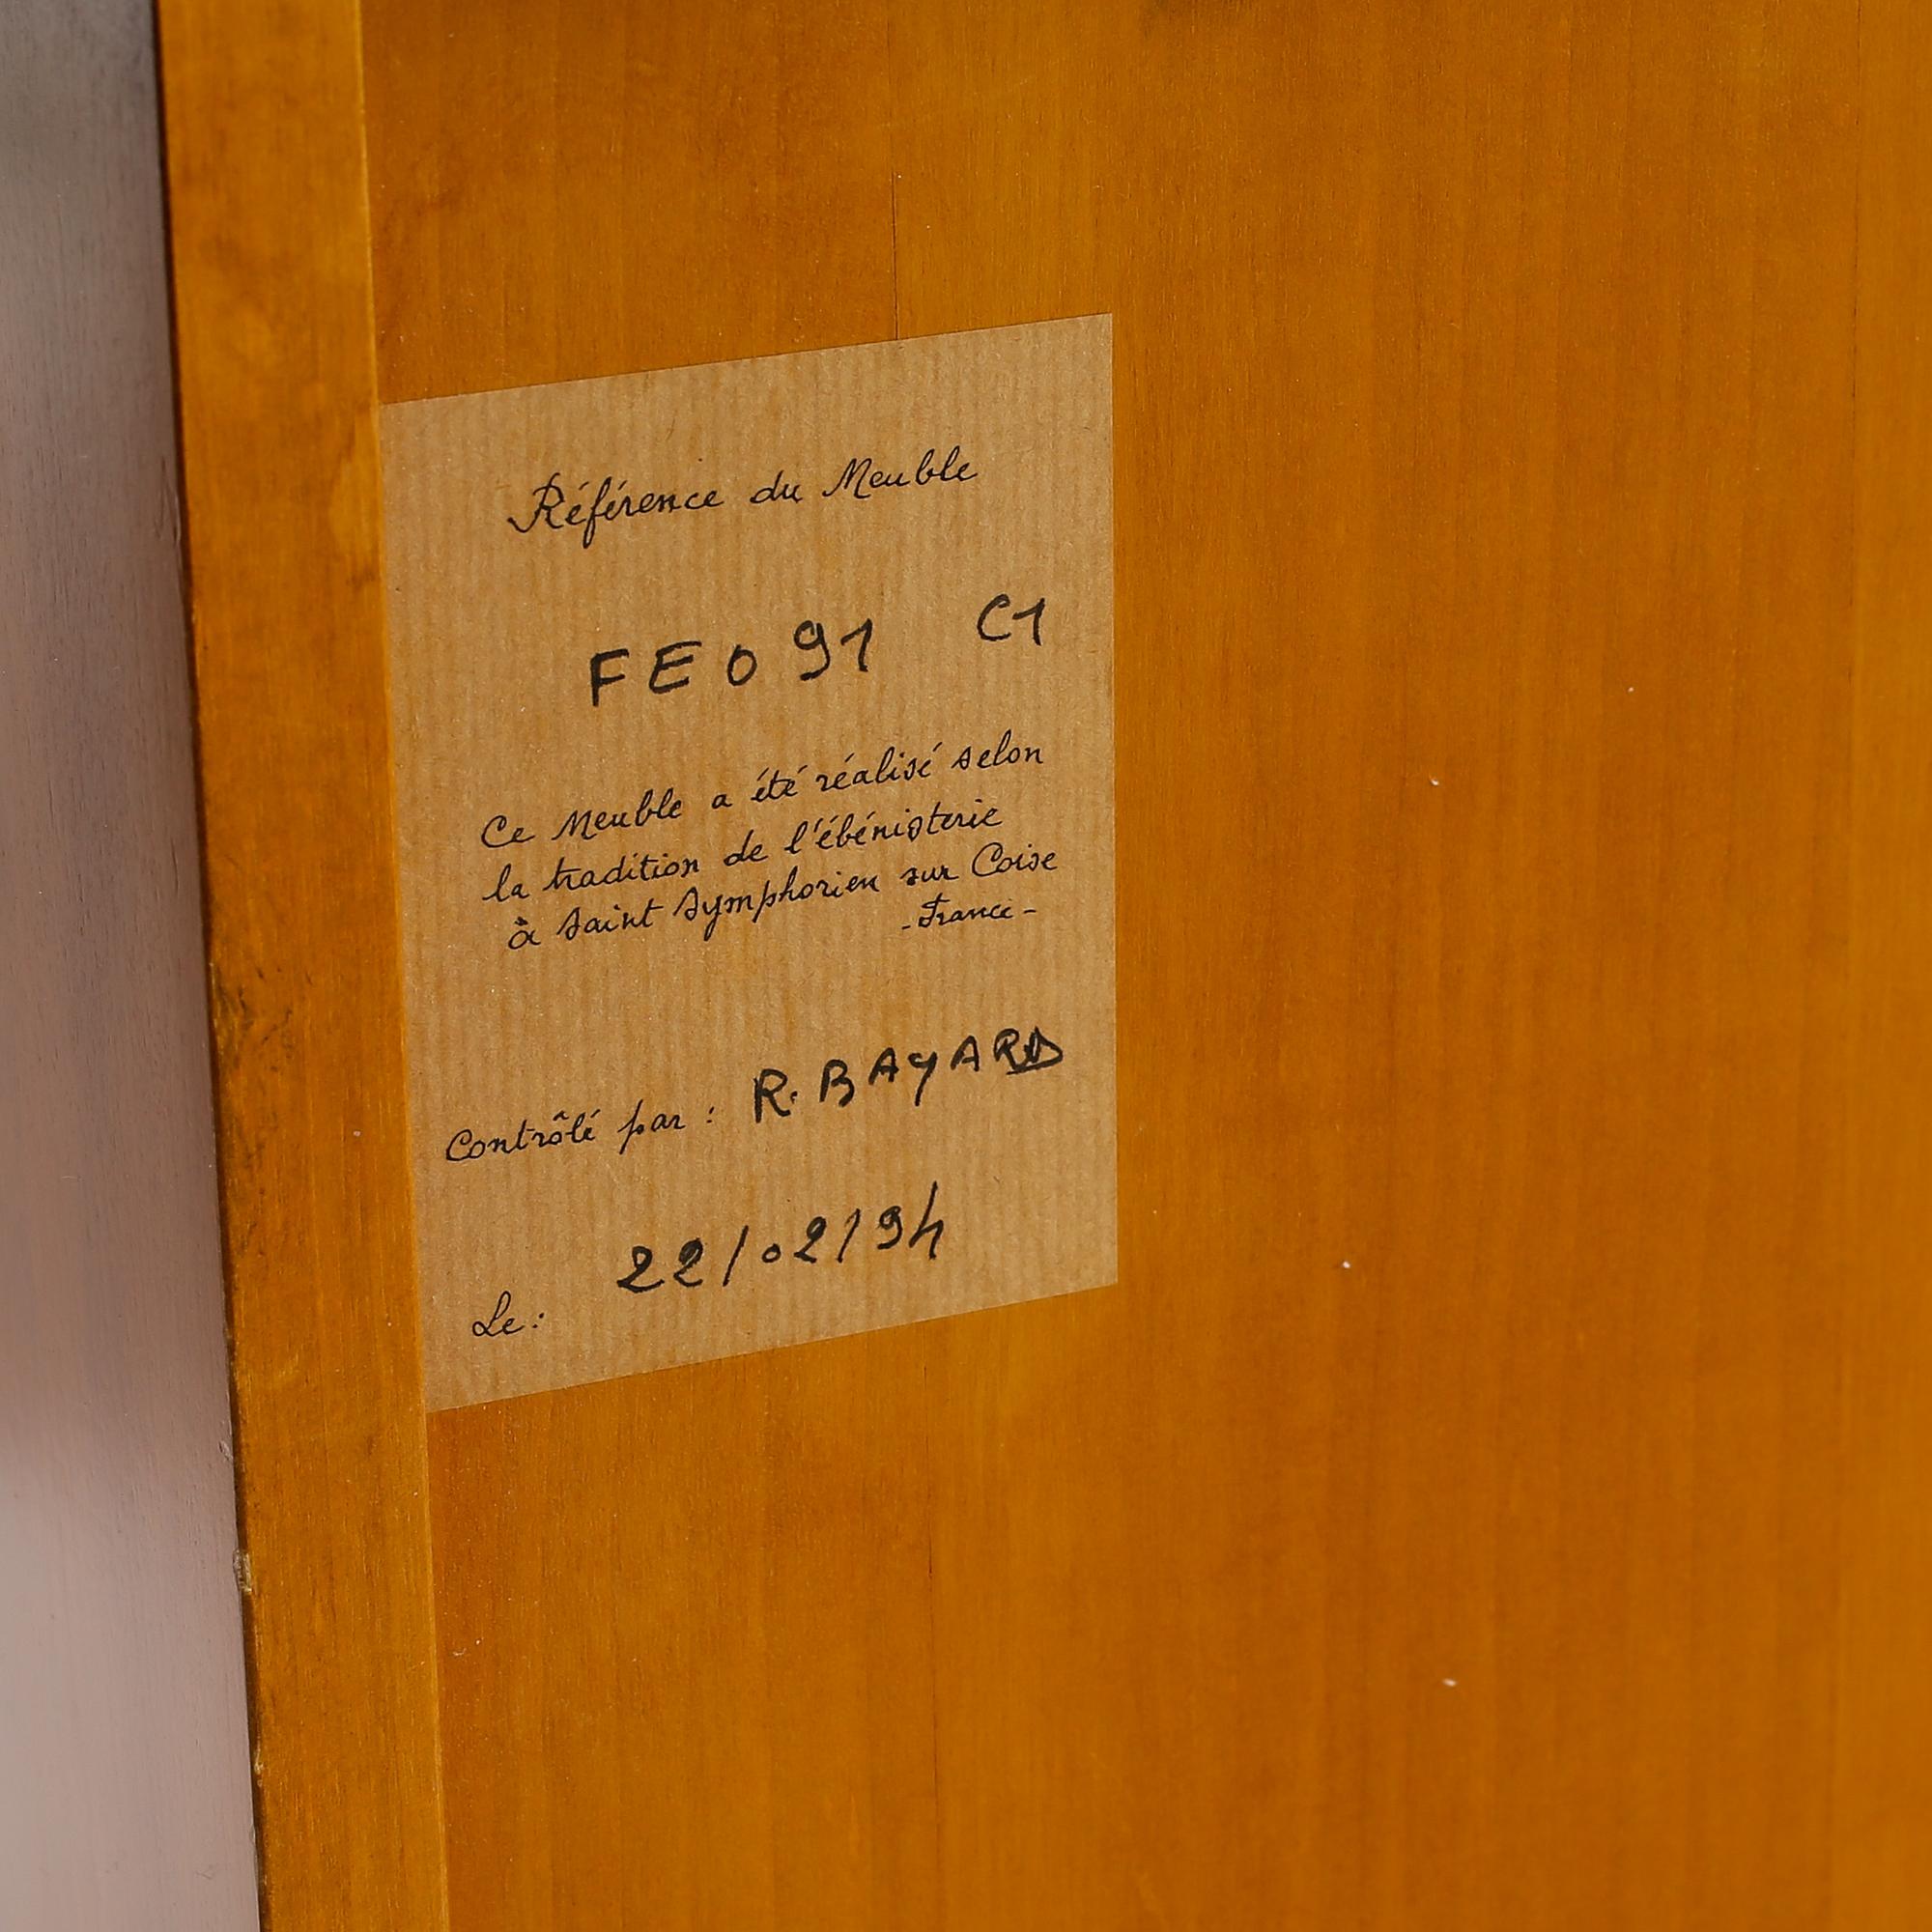 Référence du Meuble
FE091 C1
Ce Meuble a été réalisé selon
la tradition de l'ébénisterie
à Saint Symphorien sur Coise
- France -
Contrôlé par : R. BAYARD
Le : 22/02/94